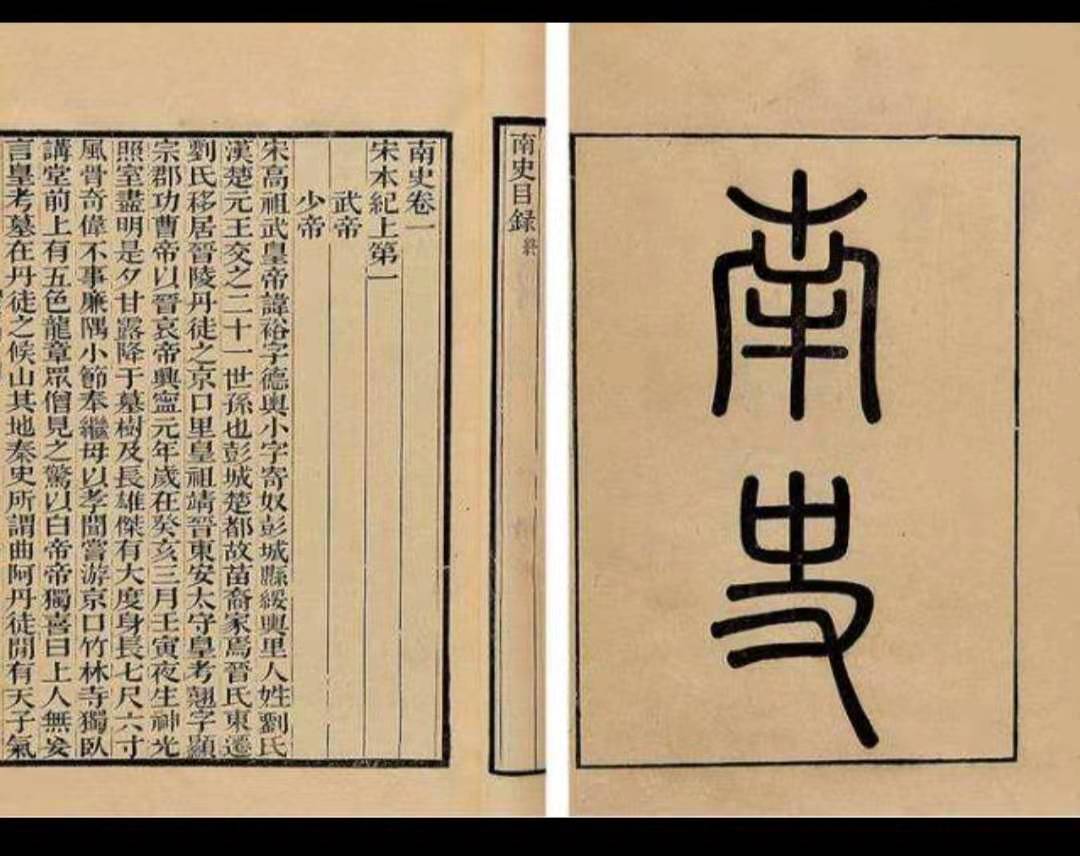 南史
南史目錄 終
南史卷一
宋本紀上第一
武帝
少帝
宋高祖武皇帝諱裕字德輿小字寄奴彭城縣綏輿里人姓劉氏
漢楚元王交之二十一世孫也彭城楚都故苗裔家焉晉氏東遷
劉氏移居晉陵丹徒之京口里皇祖靖晉東安太守皇考翹字顯
宗郡功曹帝以晉哀帝興寧元年歲在癸亥三月壬寅夜生神光
照室盡明是夕甘露降于墓樹及長雄傑有大度身長七尺六寸
風骨奇偉不事廉隅小節奉繼母以孝聞嘗游京口竹林寺獨臥
講堂前上有五色龍章眾僧見之驚以白帝帝獨喜曰上人無妄
言皇考墓在丹徒之候山其地秦史所謂曲阿丹徒閒有天子氣